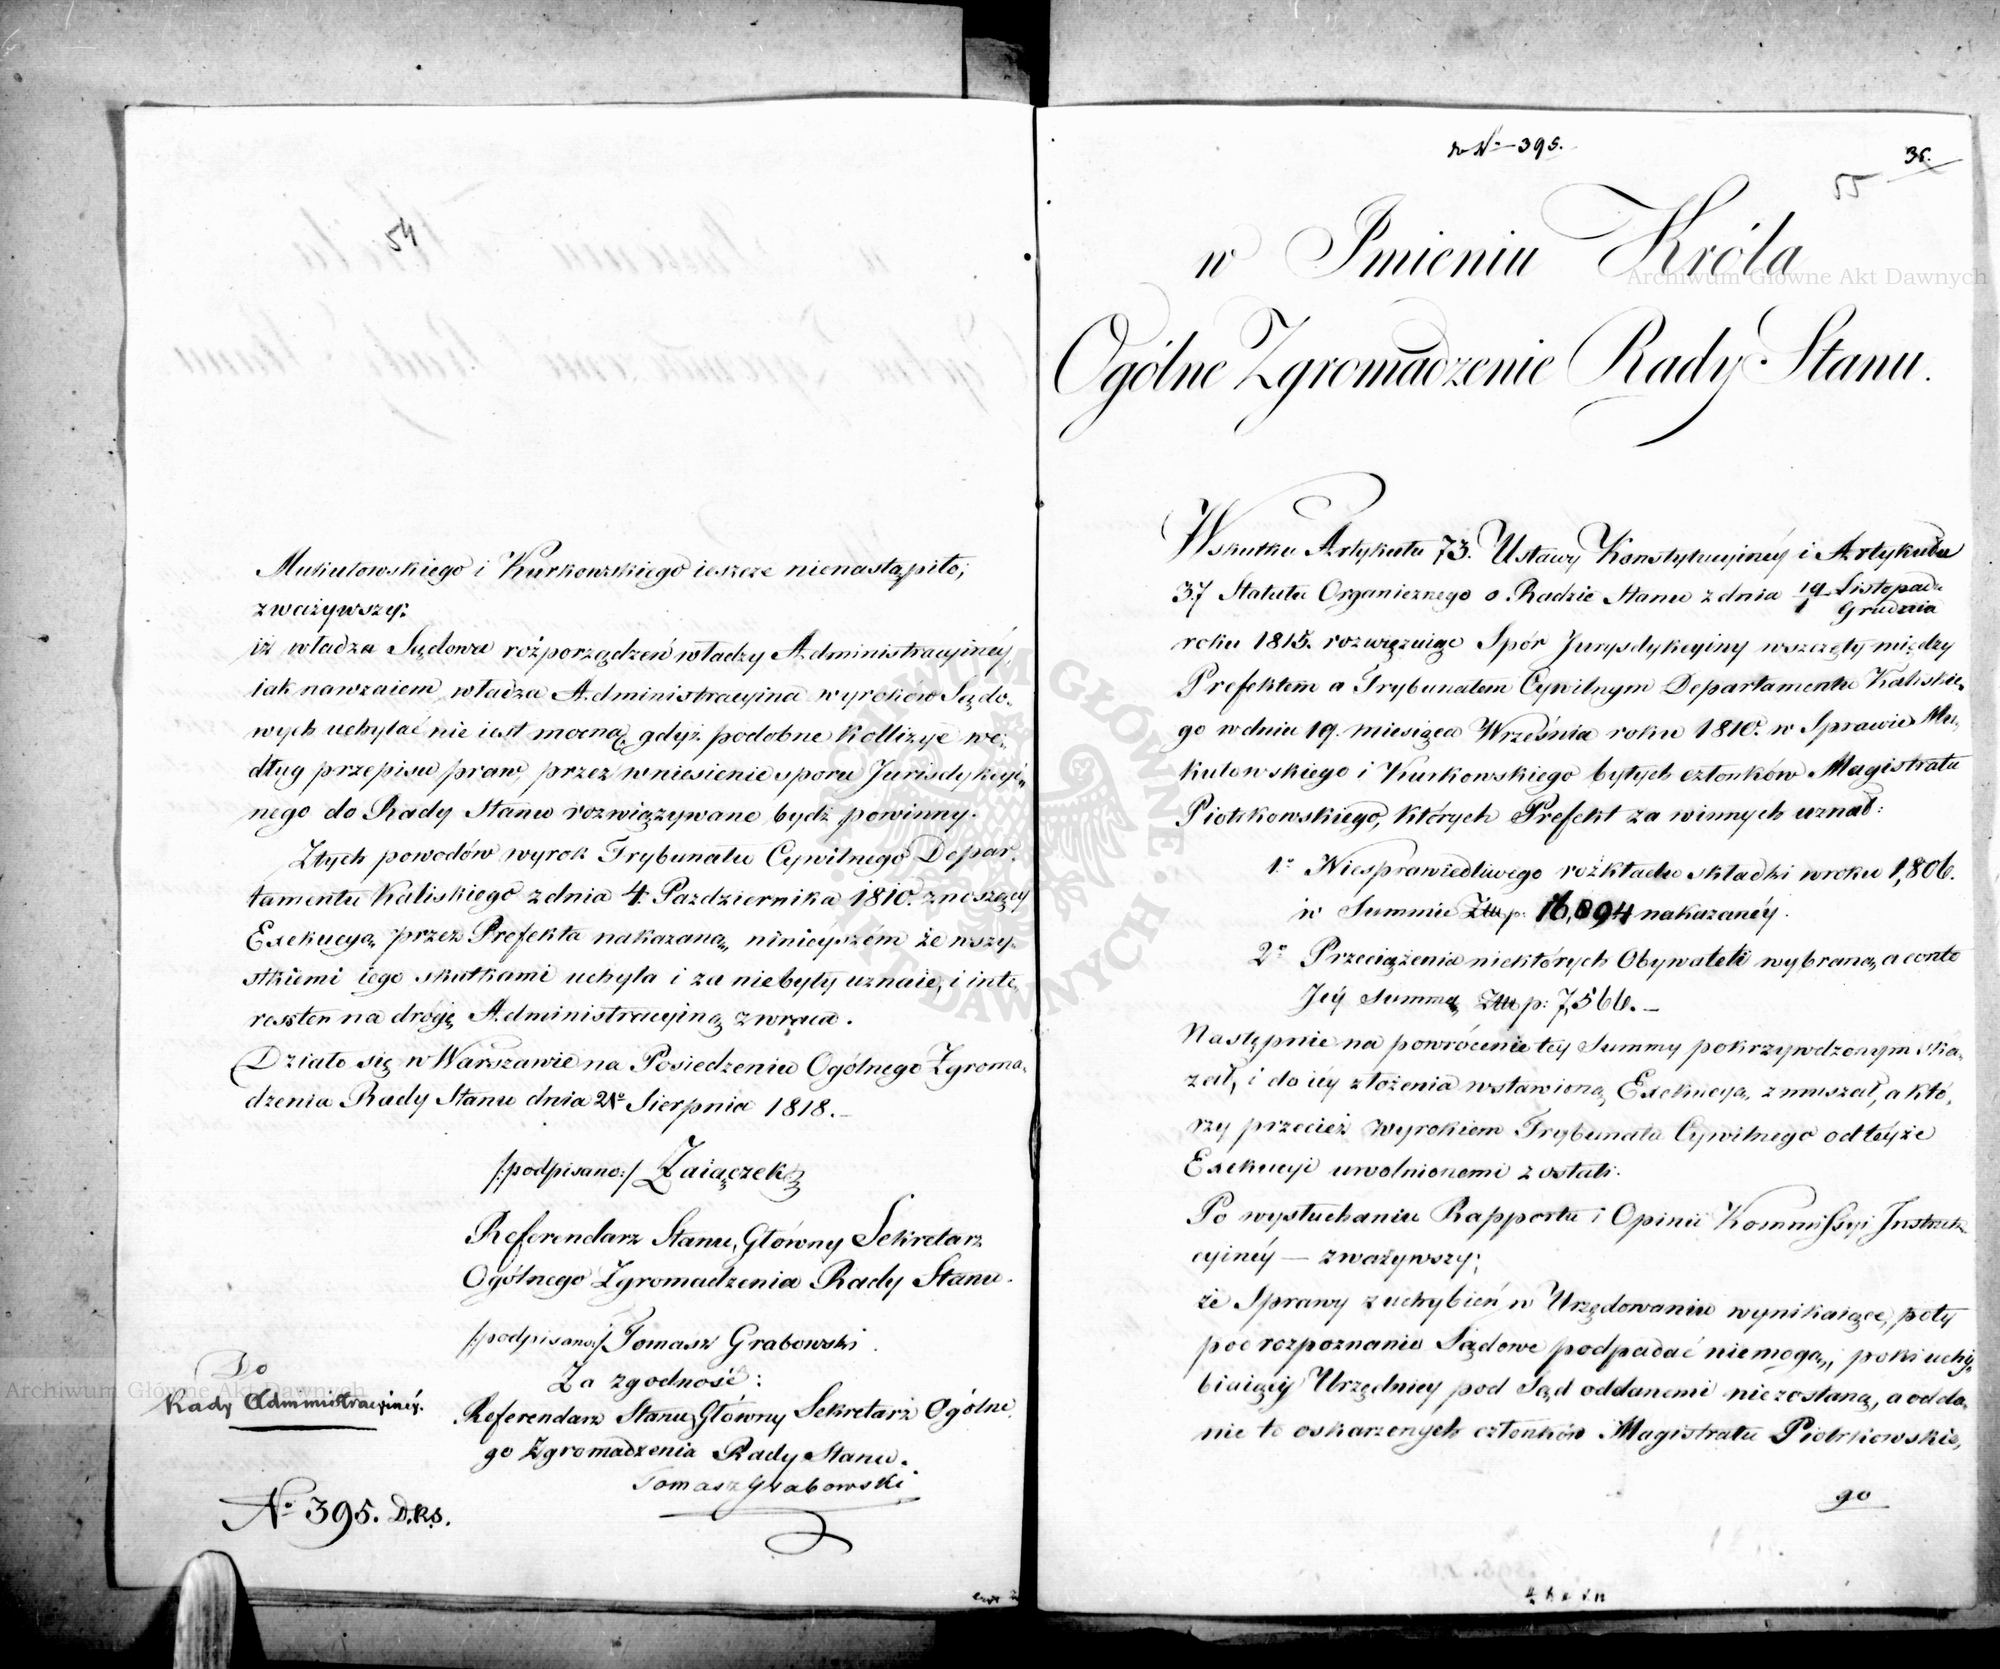 54
Mukułowskiego i Kurkowskiego ieszcze nienastąpiło;
zważywszy:
iż władza Sądowa rozporządzeń władzy Administracyinéy,
iak nawzaiem władza Administracyina wyroków Sądo-
wych uchylać nie iest mocną, gdyż podobne Kollizye we-
dług przepisu praw, przez wniesienie sporu Jurisdykcyi-
nego do Rady Stanu rozwiązywane bydź powinny.
Ztych powodów wyrok Trybunału Cywilnego Depar-
tamentu Kaliskiego z dnia 4. Pazdziernika 1810. znoszący
Exekucyą przez Prefekta nakazaną, ninieyszém ze wszy-
stkiemi iego skutkami uchyla i za niebyły uznaie, i inte-
ressten na drogę Administracyiną zwraca.
Działo się w Warszawie na Posiedzeniu Ogólnego Zgroma-
dzenia Rady Stanu dnia Sierpnia 1818.-
/:podpisano:/ Zaiączek
Referendarz Stanu, Główny Sekretarz
Ogólnego Zgromadzenia Rady Stanu.
/:podpisano:/ Tomasz Grabowski.
Za zgodność:
Referendarz Stanu, Główny Sekretarz Ogólne-
go Zgromadzenia Rady Stanu.
Tomasz Grabowski
Do
Rady Administracyinéy.
No 395. D.R.S.
No 395.
55
w Imieniu Króla
Ogólne Zgromadzenie Rady Stanu.
Wskutku Artykułu 73. Ustawy Konstytucyinéy i Artykułu
37 Statutu Organicznego o Radzie Stanu z dnia 19 Listopada
1 Grudnia
roku 1815. rozwiązuiąc Spór Jurysdykcyiny wszczęty między
Prefektem a Trybunałem Cywilnym Departamentu Kaliskie-
go w dniu 19. miesiąca Września roku 1810. w Sprawie Mu-
kułowskiego i Kurkowskiego byłych członków Magistratu
Piotrkowskiego, których Prefekt za winnych uznał:
1o Niesprawiedliwego rozkładu składki w roku 1,806.
w Summie Złłp: 16,094 nakazanéy.
2o Przeciążenia niektórych Obywateli wybraną a conto
Jéy Summą Złłp: 7,566.-
Następnie na powrócenie téy Summy pokrzywdzonym ska-
zał, i do iéy złożenia wstawioną Exekucyą zmuszał, a któ-
rzy przecież wyrokiem Trybunału Cywilnego od téyże
Exekucyi uwolnionemi zostali.
Po wysłuchaniu Rapportu i Opinii Kommissyi Instruk-
cyinéy — zważywszy:
że Sprawy z uchybień w Urzędowaniu wynikaiące, póty
pod rozpoznanie Sądowe podpadać niemogą, poki uchy-
biaiący Urzędnicy pod Sąd oddanemi niezostaną, a odda-
nie to oskarzonych członków Magistratu Piotrkowskie-
go
Archiwum Główne Akt Dawnych
Archiwum Główne Akt Dawnych
ARCHIWUM GŁÓWNE AKT DAWNYCH